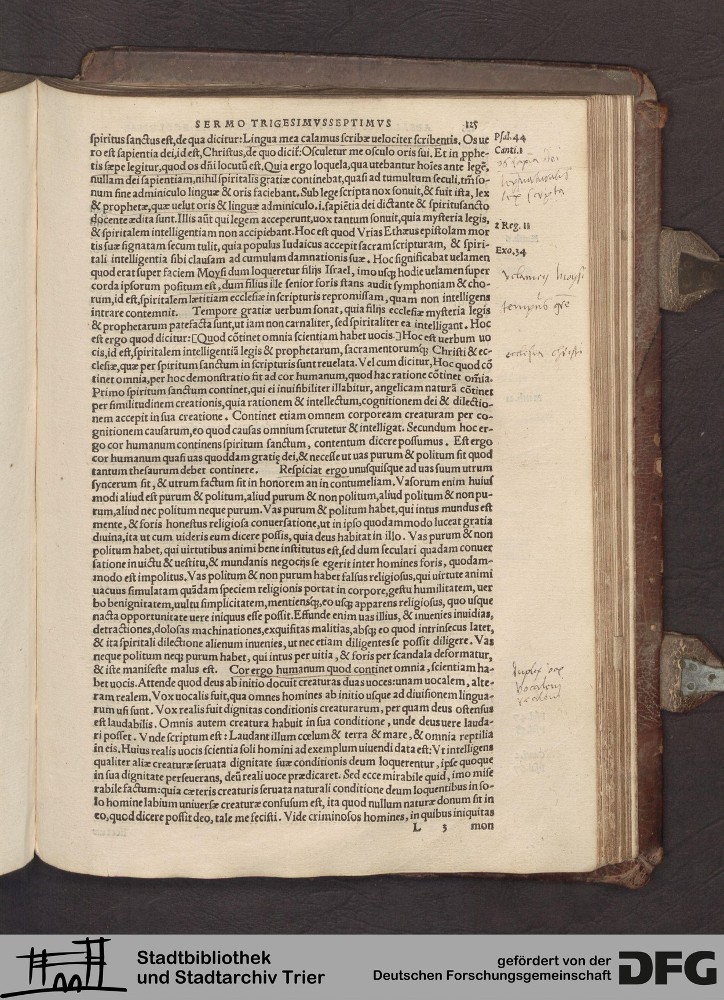 SERMO TRIGESIMVSSEPTIMVS 125
spiritus sanctus est, de qua dicitur: Lingua mea calamus scribæ uelociter scribentis. Os ue
ro est sapientia dei, id est, Christus, de quo dicit: Osculetur me osculo oris sui. Et in prophe-
tis sæpe legitur, quod os dñi locutũ est. Quia ergo loquela, qua utebantur hoĩes ante legẽ,
nullam dei sapientiam, nihil spiritalis gratiæ continebat, quasi ad tumultum seculi, tm̃ so-
num sine adminiculo linguæ & oris faciebant. Sub lege scripta uox sonuit, & fuit ista, lex
& prophetæ, quæ uelut oris & linguæ adminiculo .i. sapiẽtia dei dictante & spiritusancto
docente ædita sunt. Illis aũt qui legem acceperunt, uox tantum sonuit, quia mysteria legis,
& spiritalem intelligentiam non accipiebant. Hoc est quod Vrias Ethæus epistolam mor
tis suæ signatam secum tulit, quia populus Iudaicus accepit sacram scripturam, & spiri-
tali intelligentia sibi clausam ad cumulum damnationis suæ. Hoc significabat uelamen
quod erat super faciem Moysi dum loqueretur filijs Israel, imo usq; hodie uelamen super
corda ipsorum positum est, dum filius ille senior foris stans audit symphoniam & cho-
rum, id est, spiritalem lætitiam ecclesiæ in scripturis repromissam, quam non intelligens
intrare contemnit. Tempore gratiæ uerbum sonat, quia filijs ecclesiæ mysteria legis
& prophetarum patefacta sunt, ut iam non carnaliter, sed spiritaliter ea intelligant. Hoc
est ergo quod dicitur: [Quod cõtinet omnia scientiam habet uocis.] Hoc est uerbum uo
cis, id est, spiritalem intelligentiã legis & prophetarum, sacramentorumq; Christi & ec-
clesiæ, quæ per spiritum sanctum in scripturis sunt reuelata. Vel cum dicitur, Hoc quod cõ
tinet omnia, per hoc demonstratio fit ad cor humanum, quod hac ratione cõtinet om̃ia.
Primo spiritum sanctum continet, qui ei inuisibiliter illabitur, angelicam naturã cõtinet
per similitudinem creationis, quia rationem & intellectum, cognitionem dei & dilectio-
nem accepit in sua creatione. Continet etiam omnem corpoream creaturam per co-
gnitionem causarum, eo quod causas omnium scrutetur & intelligat. Secundum hoc er-
go cor humanum continens spiritum sanctum, contentum dicere possumus. Est ergo
cor humanum quasi uas quoddam gratię dei, & necesse ut uas purum & politum sit quod
tantum thesaurum debet continere. Respiciat ergo unusquisque ad uas suum utrum
syncerum sit, & utrum factum sit in honorem an in contumeliam. Vasorum enim huius
modi aliud est purum & politum, aliud purum & non politum, aliud politum & non pu-
rum, aliud nec politum neque purum. Vas purum & politum habet, qui intus mundus est
mente, & foris honestus religiosa conuersatione, ut in ipso quodammodo luceat gratia
diuina, ita ut cum uideris eum dicere possis, quia deus habitat in illo. Vas purum & non
politum habet, qui uirtutibus animi bene institutus est, sed dum seculari quadam conuer
satione in uictu & uestitu, & mundanis negocijs se egerit inter homines foris, quodam-
modo est impolitus. Vas politum & non purum habet falsus religiosus, qui uirtute animi
uacuus simulatam quãdam speciem religionis portat in corpore, gestu humilitatem, uer
bo benignitatem, uultu simplicitatem, mentiensq;, eo usq; apparens religiosus, quo usque
nacta opportunitate uere iniquus esse possit. Effunde enim uas illius, & inuenies inuidias,
detractiones, dolosas machinationes, exquisitas malitias, absq; eo quod intrinsecus latet,
& ita spiritali dilectione alienum inuenies, ut nec etiam diligentes se possit diligere. Vas
neque politum neq; purum habet, qui intus per uitia, & foris per scandala deformatur,
& iste manifeste malus est. Cor ergo humanum quod continet omnia, scientiam ha-
bet uocis. Attende quod deus ab initio docuit creaturas duas uoces: unam uocalem, alte-
ram realem. Vox uocalis fuit, qua omnes homines ab initio usque ad diuisionem lingua-
rum usi sunt. Vox realis fuit dignitas conditionis creaturarum, per quam deus ostensus
est laudabilis. Omnis autem creatura habuit in sua conditione, unde deus uere lauda-
ri posset. Vnde scriptum est: Laudant illum cœlum & terra & mare, & omnia reptilia
in eis. Huius realis uocis scientia soli homini ad exemplum uiuendi data est: Vt intelligens
qualiter aliæ creaturæ seruata dignitate suæ conditionis deum loquerentur, ipse quoque
in sua dignitate perseuerans, deũ reali uoce prædicaret. Sed ecce mirabile quid, imo mise
rabile factum: quia cæteris creaturis seruata naturali conditione deum loquentibus in so-
lo homine labium uniuersæ creaturæ confusum est, ita quod nullum naturæ donum sit in
eo, quod dicere possit deo, tale me fecisti. Vide criminosos homines, in quibus iniquitas
L 3 mon
Psal. 44
Canti. 1
2 Reg. 11
Exo. 34
ecclesia christi
Duplex vox
Vocalem
Stadtbibliothek
und Stadtarchiv Trier
gefördert von der
Deutschen Forschungsgemeinschaft
DFG